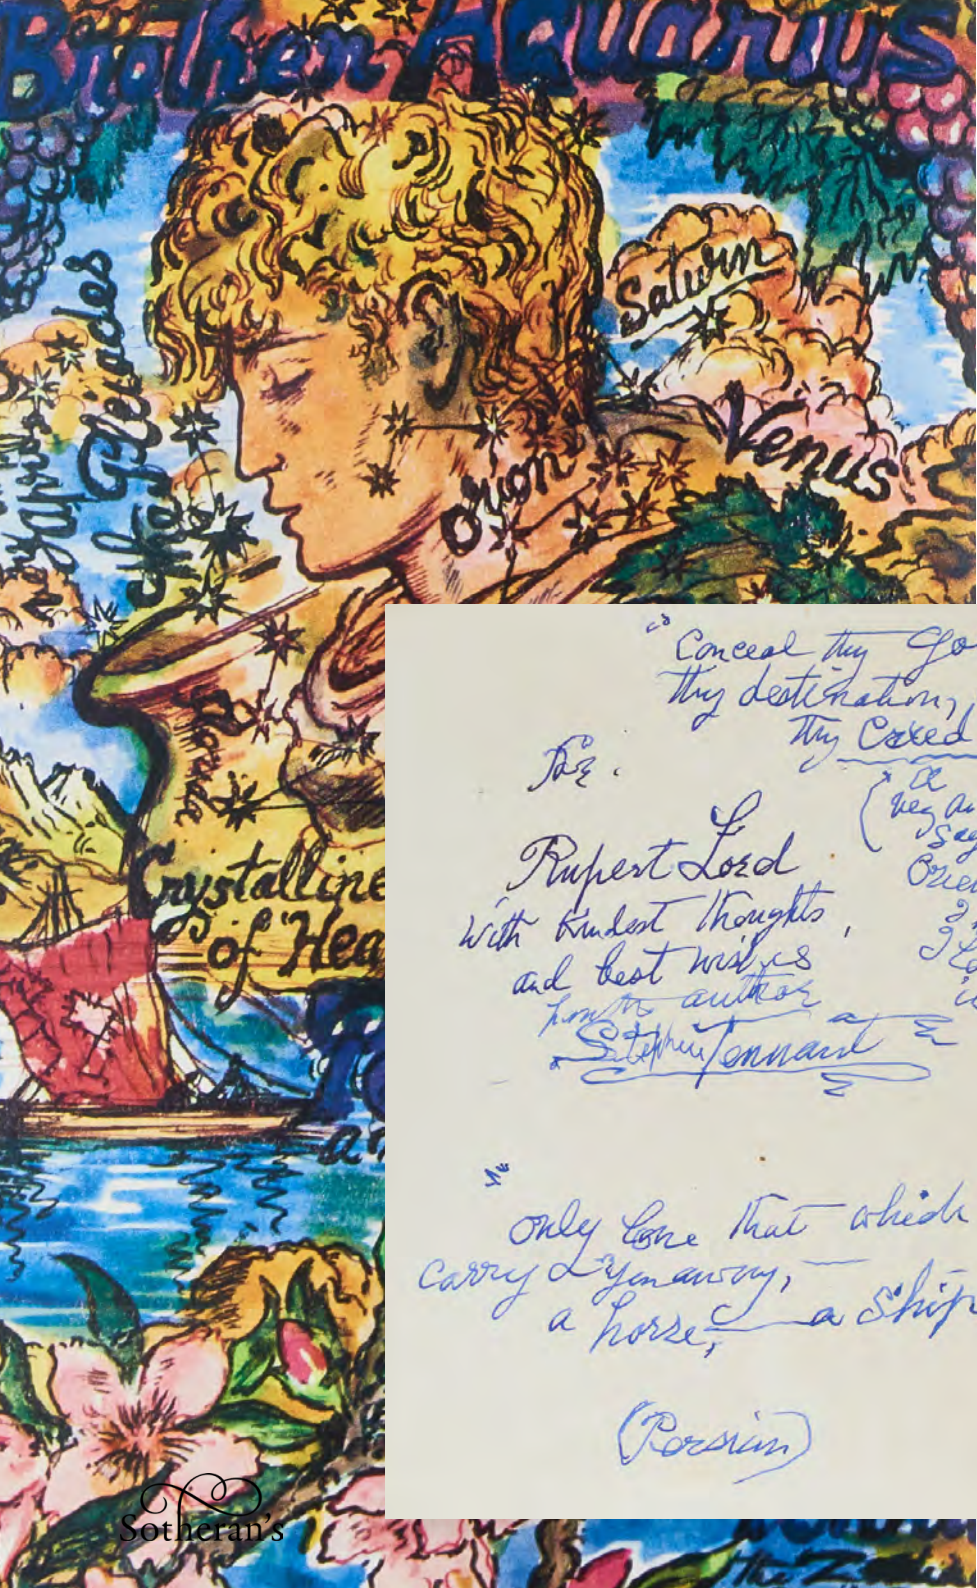 Brother Aquarius
Saturn
Pleiades
Venus
Orion
Crystalline
of Hea
"Conceal thy Go
thy destination,
thy Creed
For.
a
say
Rupert Lord
with kindest thoughts,
and best wishes
from the author
Stephen Tennant
"only love that which
carry you away,
a horse, — a ship
(Persian)
Sotheran's
the Zodiac